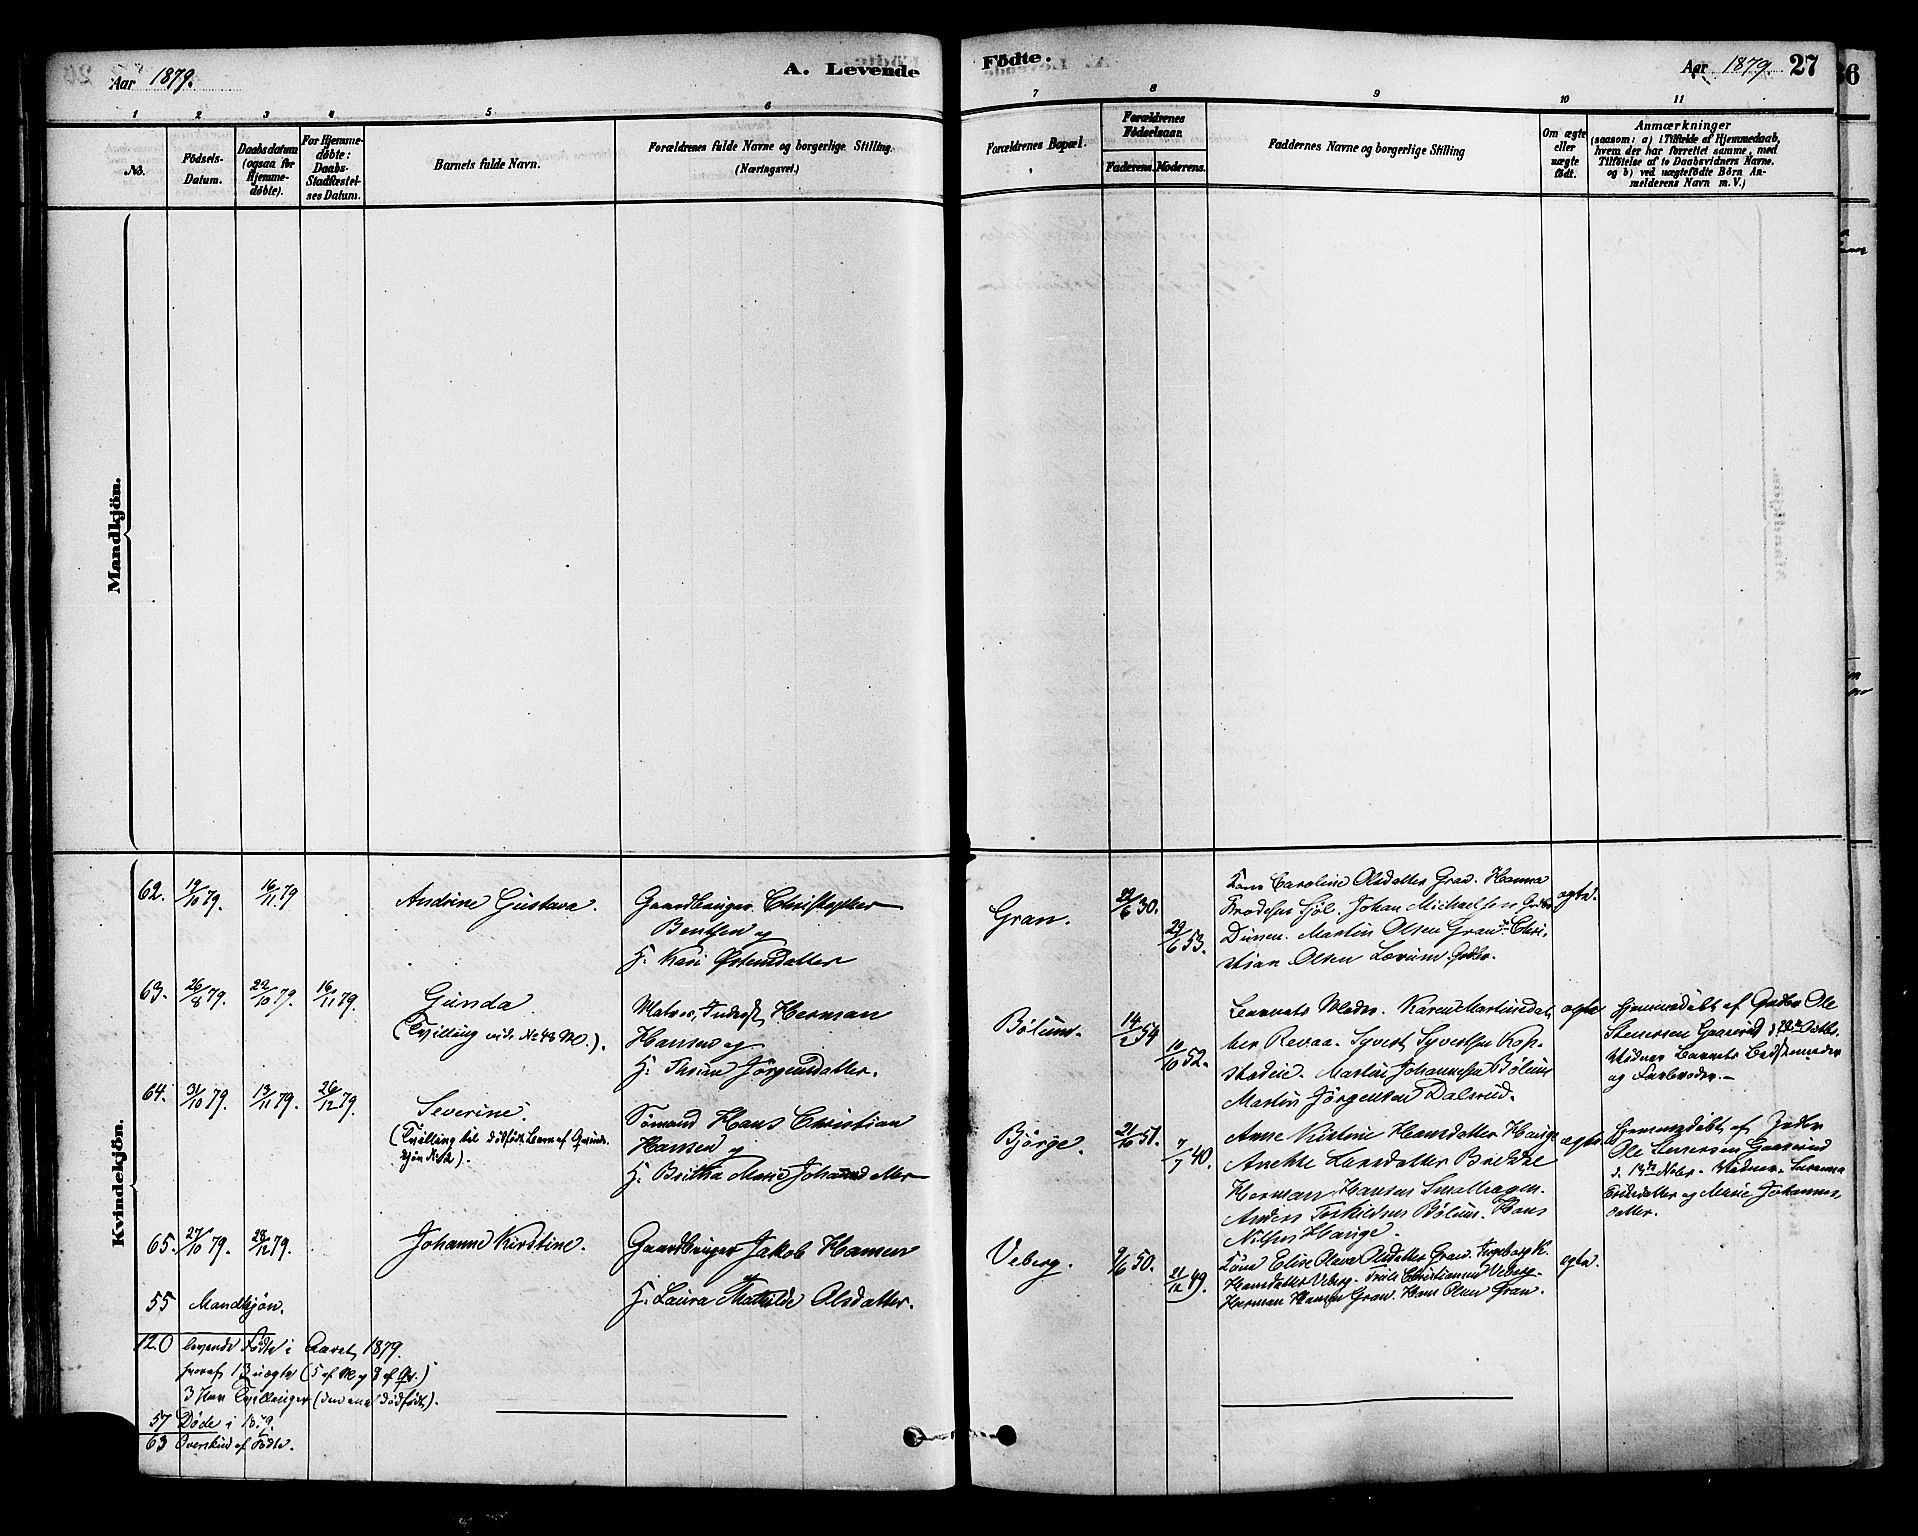 Aar 1879.
A. Levende
Födte.
Aar 1879. 27
1 2 3 4 5 6
7 8 9 10 11
No.
Födsels-
Datum.
Daabsdatum
(ogsaa for
Hjemme-
døbte).
For Hjemme-
døbte:
Daabs-
Stadfæstel-
ses Datum.
Barnets fulde Navn.
Forældrenes fulde Navne og borgerlige Stilling.
(Næringsvei.)
Forældrenes Bopæl.
Forældrenes
Födselsaar.
Faderens. Moderens.
Faddernes Navne og borgerlige Stilling
Om ægte
eller
uægte
född.
Anmærkninger
(saasom: a) i Tilfælde af Hjemmedaab,
hvem der har forrettet samme, med
Tilföielse af to Daabsvidners Navne.
og b) ved uægtefödte Börn An-
melderens Navn m.V.)
Mandkjön.
Kvindekjön.
62. 19/10 79. 16/11 79
Andrine Gustava.
Gaardbruger Christopher
Bentsen og
H. Kari Østensdatter
Gran.
22/6 30.
29/6 53.
Caroline Olsdatter Gran. Hanna
Johan Michaelsen
Martin Olsen Gran. Chri-
stian Olsen
ægte.
63. 26/8 79. 22/10 79. 16/11 79
Gunda
(Tvilling vide No 48 M.).
Herman
Hansen og
H. Jørgensdatter.
Bølum.
14/2 54
10/10 52.
Barnets Moder. Karen Martinsdat-
ter Revaa. Syvert Syvertsen Rop-
stadeie. Martin Johannesen Bølum
Martin Jørgensen Dalsrud.
ægte
Hjemmedøbt af Ole
Stenersen Gaasrud
Vidner Barnets Bedstemoder
og Farbroder.
64. 31/10 79. 13/11 79. 26/12 79.
Severine.
(Tvilling til dødfødt Barn af Qvinde-
kjøn No 2).
Sømand Hans Christian
Hansen og
H. Britha Marie Johannesdatter
Bjørge.
21/10 51.
7/7 40.
Anne Kistine Hansdatter Hauge
Anette Larsdatter Brekke
Herman Hansen Smalhagen.
Anders Torkildsen Bølum. Hans
Nilsen Hauge.
ægte
Hjemmedøbt af
Ole Stenersen Gaasrud
d. 13de Novbr. Vidner.
og Marie Johannes-
datter.
65. 27/10 79. 28/12 79.
Johanne Kirstine.
Gaardbruger Jakob Hansen
H. Laura Mathilde Olsdatter.
Veberg.
9/6 50.
21/12 49.
Elise Olava Olsdatter Gran. Ingeborg K.
Hansdatter Veberg. Christiansen Veberg.
Herman Hansen Gran. Hans Olsen Gran.
ægte.
55 Mandkjøn.
120 levende Fødte i Aaret 1879.
hvoraf 13 uægte (5 af M og 8 af Qv.)
3 Par Tvillinger (den ene dødfødt).
57 Døde i 1879.
63 Overskud af Fødte.